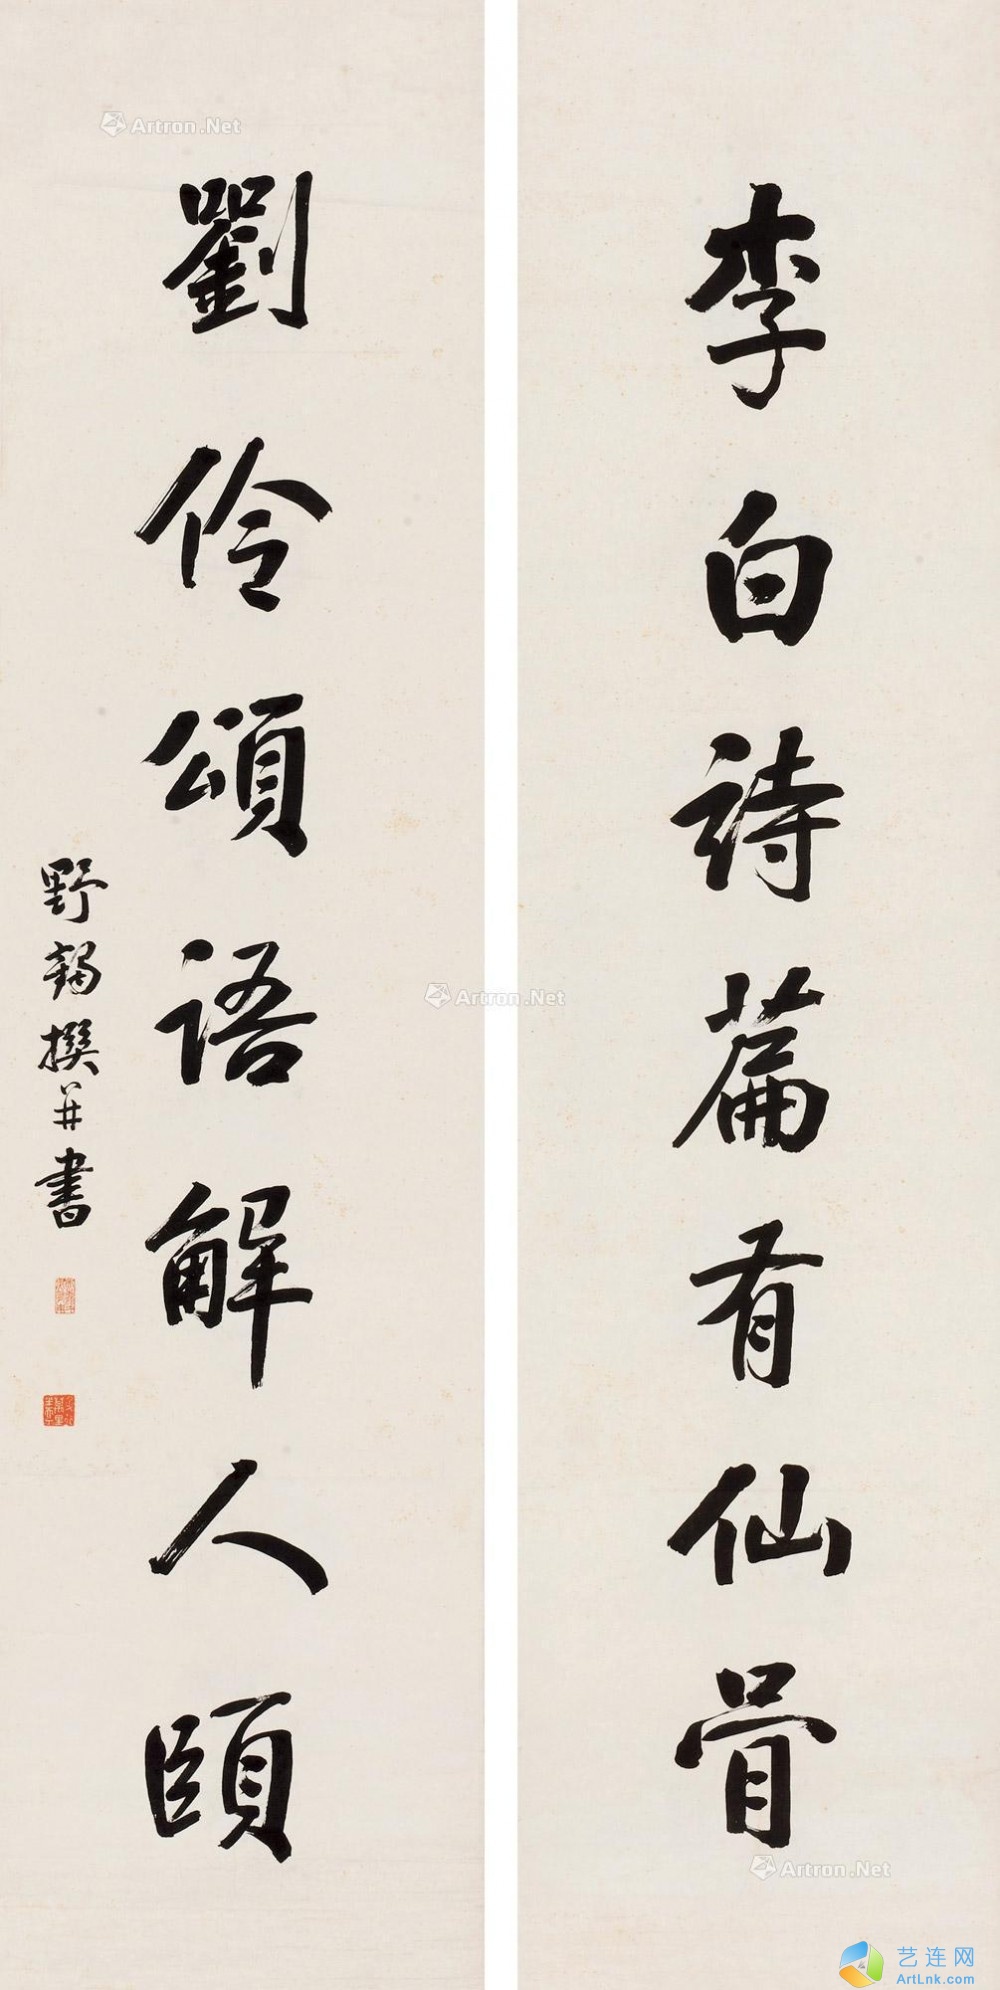 李白詩篇有仙骨
劉伶頌語解人頤
野鶴撰并書
Artron.Net
Artron.Net
Artron.Net
艺连网
ArtLnk.com